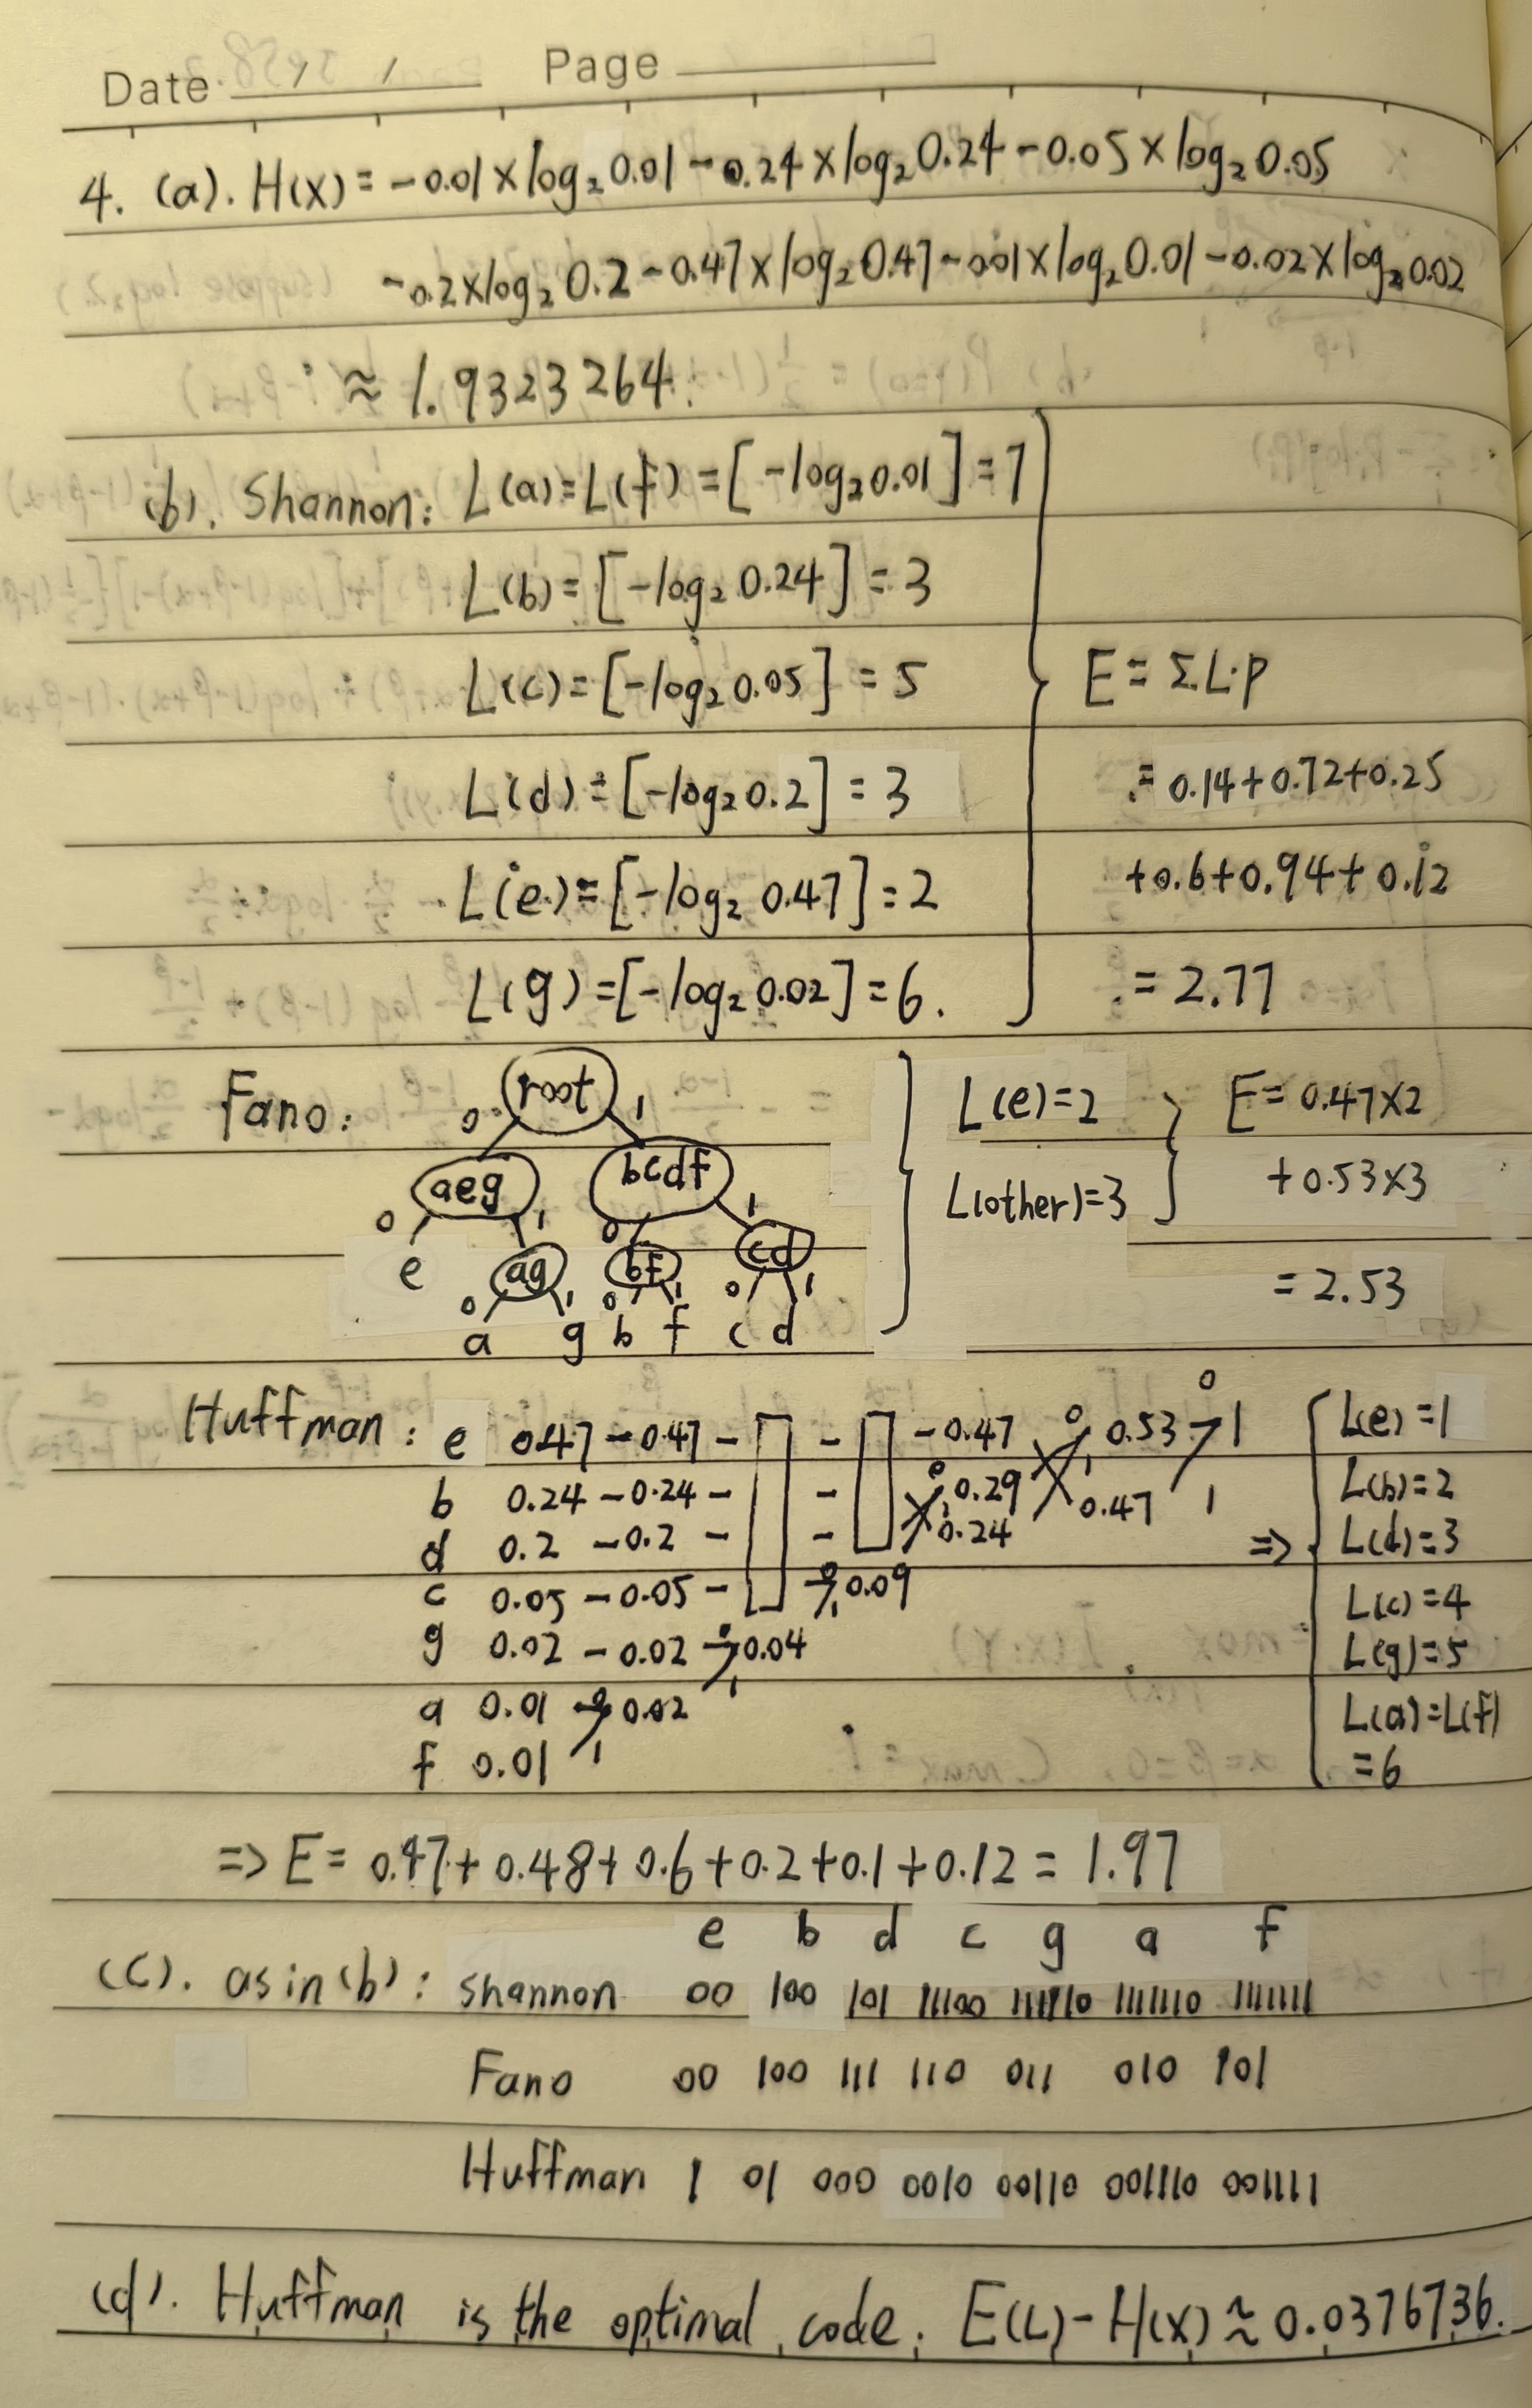 Date / / Page
4. (a). H(X) = -0.01 × log₂ 0.01 - 0.24 × log₂ 0.24 - 0.05 × log₂ 0.05
-0.2 × log₂ 0.2 - 0.47 × log₂ 0.47 - 0.01 × log₂ 0.01 - 0.02 × log₂ 0.02
≈ 1.9323264.
(b). Shannon: L(a) = L(f) = [-log₂ 0.01] = 7
L(b) = [-log₂ 0.24] = 3
L(c) = [-log₂ 0.05] = 5
E = Σ L·p
L(d) = [-log₂ 0.2] = 3
= 0.14 + 0.72 + 0.25
L(e) = [-log₂ 0.47] = 2
+ 0.6 + 0.94 + 0.12
L(g) = [-log₂ 0.02] = 6.
= 2.77
Fano:
root
0 1
aeg bcdf
0 1 0 1
e ag bf cd
0 1 0 1 0 1
a g b f c d
L(e) = 2
L(other) = 3
E = 0.47×2
+ 0.53×3
= 2.53
Huffman: e 0.47 - 0.47 - - - 0.47 0 0.53 0 1
b 0.24 - 0.24 - - 0 0.29 1 0.47 1
d 0.2 - 0.2 - - 1 0.24
c 0.05 - 0.05 - 0 1 0.09
g 0.02 - 0.02 0 1 0.04
a 0.01 0 0.02
f 0.01 1
=> L(e) = 1
L(b) = 2
L(d) = 3
L(c) = 4
L(g) = 5
L(a) = L(f)
= 6
=> E = 0.47 + 0.48 + 0.6 + 0.2 + 0.1 + 0.12 = 1.97
e b d c g a f
(c). as in (b): shannon 00 100 101 11100 111110 1111110 1111111
Fano 00 100 111 110 011 010 101
Huffman 1 01 000 0010 00110 001110 001111
(d). Huffman is the optimal code. E(L) - H(X) ≈ 0.0376736.